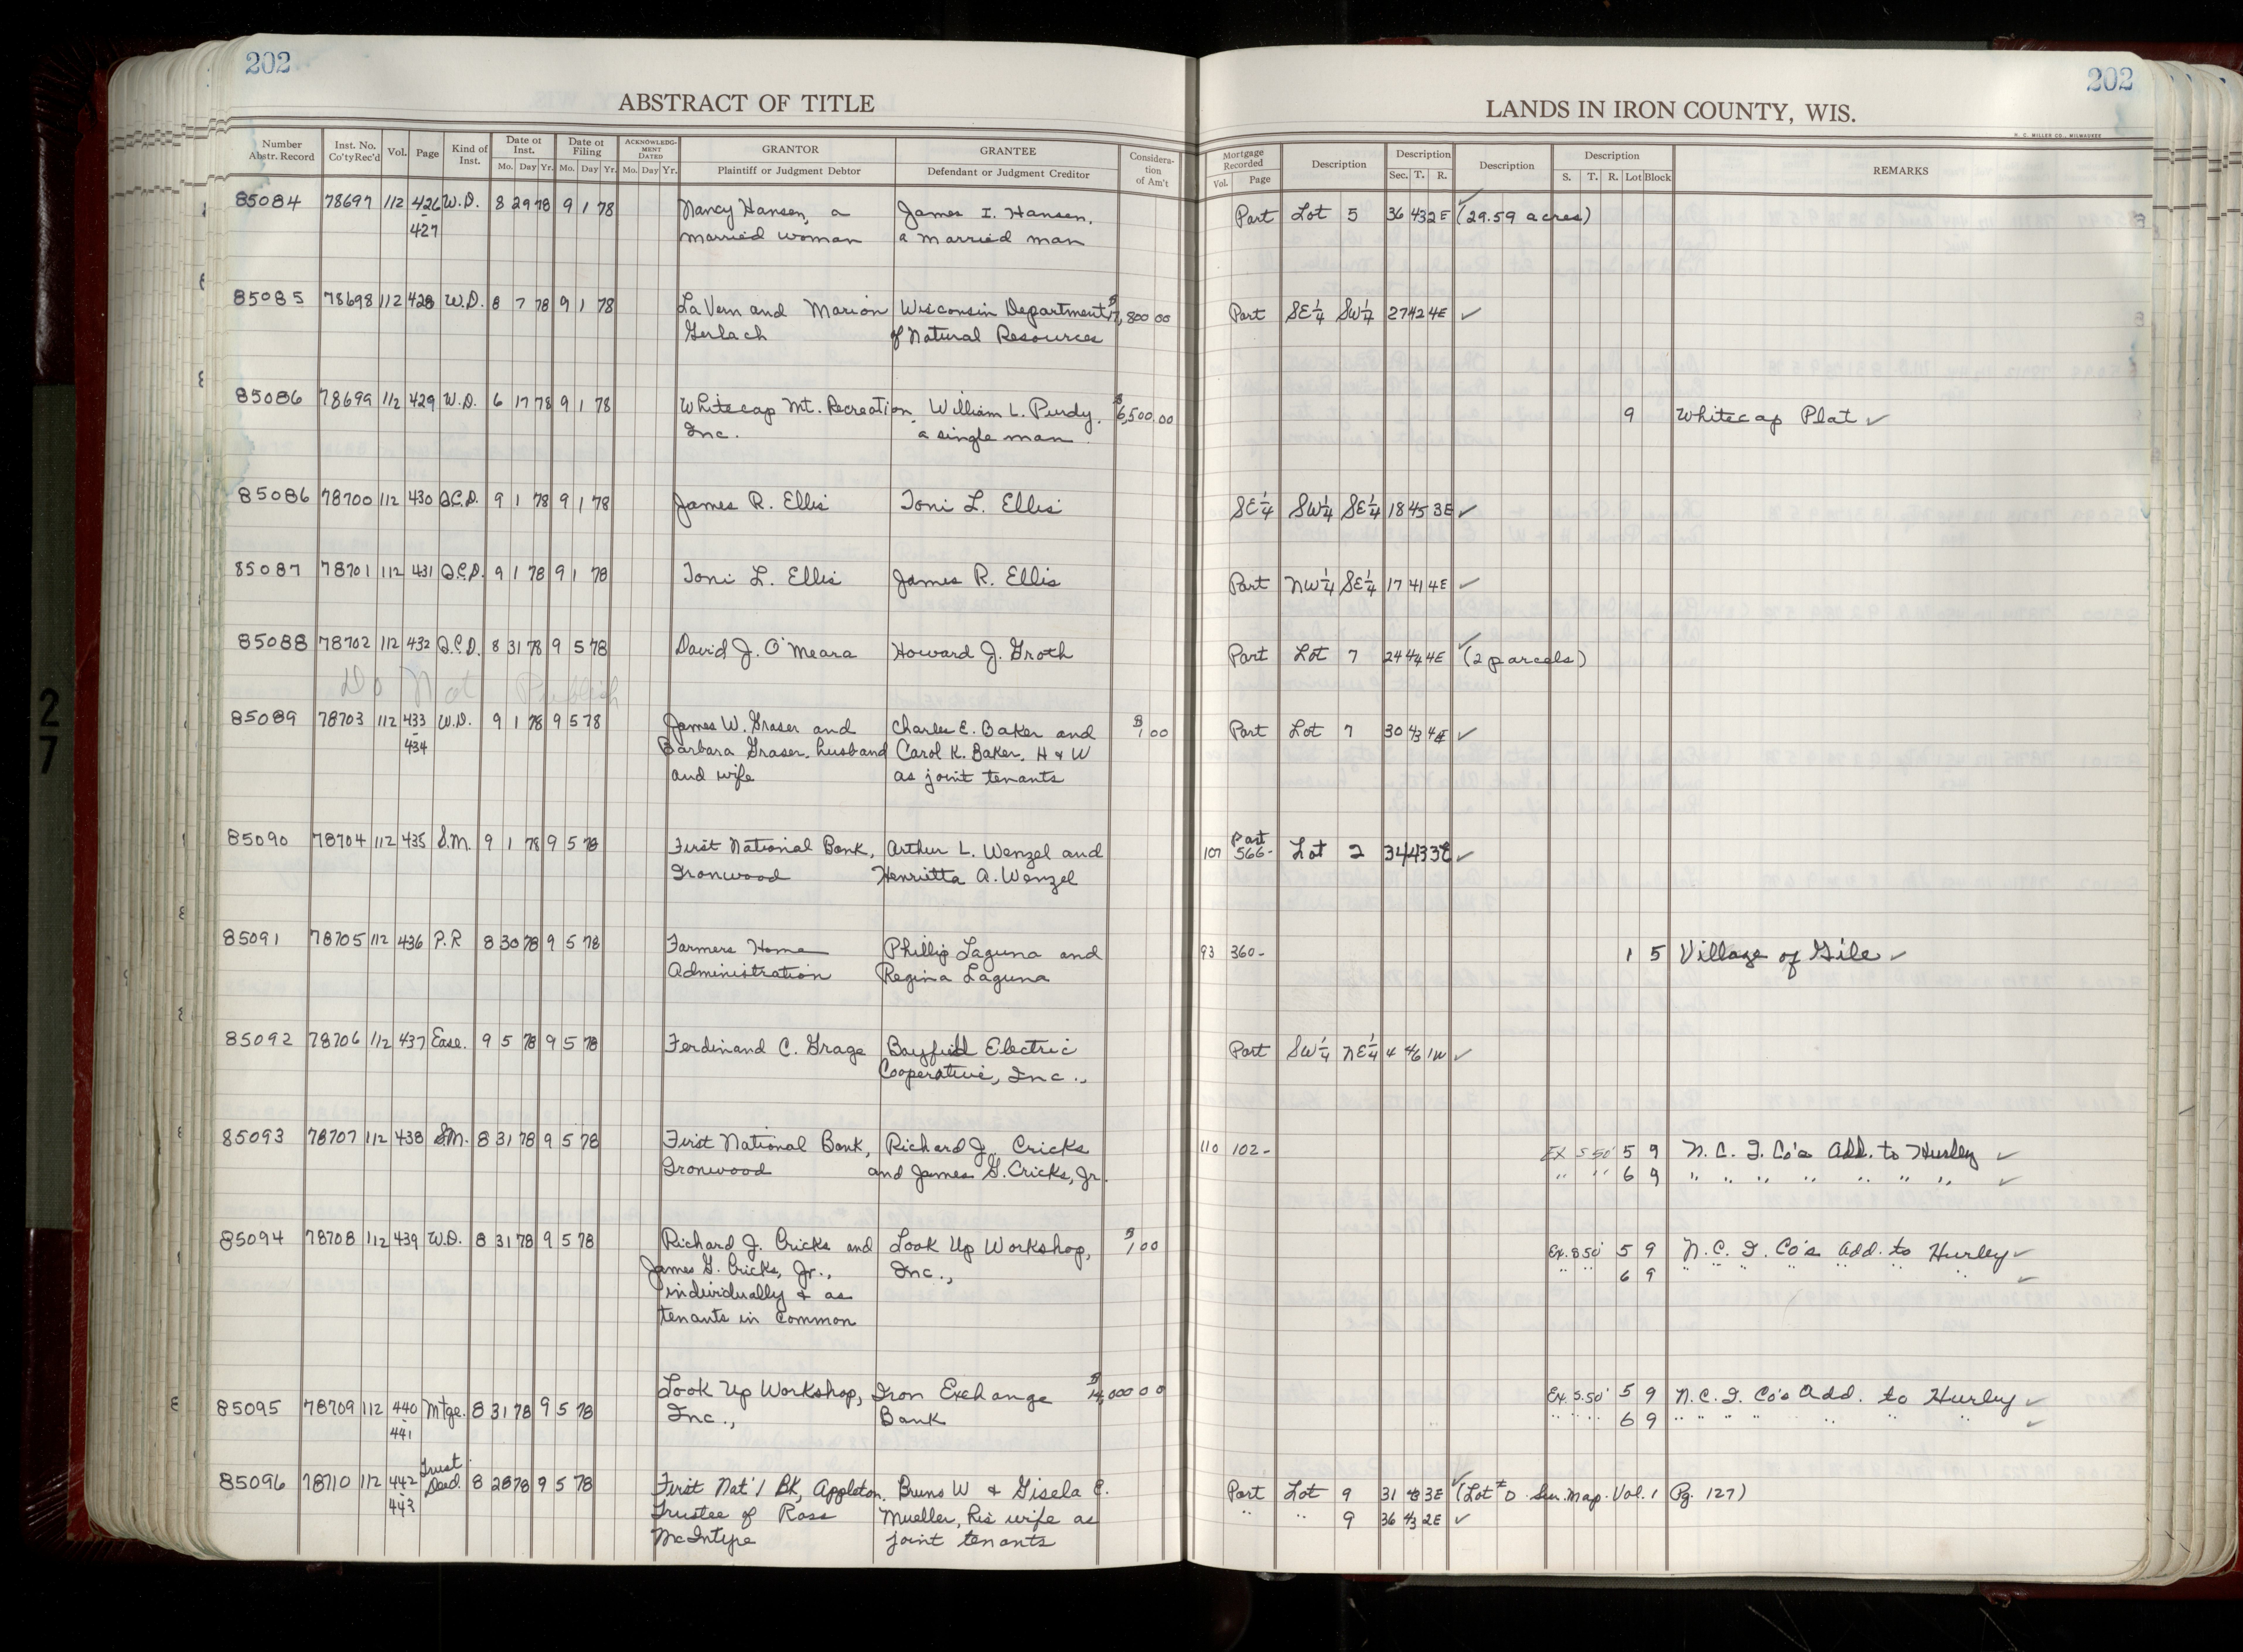 202
202
ABSTRACT OF TITLE
LANDS IN IRON COUNTY, WIS.
H. C. MILLER CO., MILWAUKEE
Number Abstr. Record | Inst. No. Co'ty Rec'd | Vol. | Page | Kind of Inst. | Date of Inst. Mo. Day Yr. | Date of Filing Mo. Day Yr. | ACKNOWLEDGMENT DATED Mo. Day Yr. | GRANTOR Plaintiff or Judgment Debtor | GRANTEE Defendant or Judgment Creditor | Consideration of Am't | Mortgage Recorded Vol. Page | Description | Description Sec. T. R. | Description | Description S. T. R. Lot Block | REMARKS
85084 78697 112 426 W.D. 8 29 78 9 1 78 Nancy Hansen, a James I. Hansen, Part Lot 5 36 43 2E ✓ (29.59 acres)
- 427 married woman a married man
85085 78698 112 428 W.D. 8 7 78 9 1 78 LaVern and Marion Wisconsin Department $17,800 00 Part SE¼ SW¼ 27 42 4E ✓
Gerlach of Natural Resources
85086 78699 112 429 W.D. 6 17 78 9 1 78 Whitecap Mt. Recreation William L. Purdy, $6,500.00 9 Whitecap Plat ✓
Inc. a single man
85086 78700 112 430 Q.C.D. 9 1 78 9 1 78 James R. Ellis Toni L. Ellis SE¼ SW¼ SE¼ 18 45 3E ✓
85087 78701 112 431 Q.C.D. 9 1 78 9 1 78 Toni L. Ellis James R. Ellis Part NW¼ SE¼ 17 41 4E ✓
85088 78702 112 432 Q.C.D. 8 31 78 9 5 78 David J. O'Meara Howard J. Groth Part Lot 7 24 44 4E ✓ (2 parcels)
Do Not Publish
85089 78703 112 433 W.D. 9 1 78 9 5 78 James W. Graser and Charles E. Baker and $1 00 Part Lot 7 30 43 4E ✓
- 434 Barbara Graser, husband Carol K. Baker, H & W
and wife as joint tenants
85090 78704 112 435 S.M. 9 1 78 9 5 78 First National Bank, Arthur L. Wenzel and 107 566- Part Lot 2 34 43 3E ✓
Ironwood Henrietta A. Wenzel
85091 78705 112 436 P.R 8 30 78 9 5 78 Farmers Home Phillip Laguna and 93 360- 1 5 Village of Gile ✓
Administration Regina Laguna
85092 78706 112 437 Ease. 9 5 78 9 5 78 Ferdinand C. Grage Bayfield Electric Part SW¼ NE¼ 4 46 1W ✓
Cooperative, Inc.,
85093 78707 112 438 S.M. 8 31 78 9 5 78 First National Bank, Richard J. Cricks 110 102- Ex S 50' 5 9 N. C. I. Co's Add. to Hurley ✓
Ironwood and James G. Cricks, Jr. " " 6 9 " " " " " " " ✓
85094 78708 112 439 W.D. 8 31 78 9 5 78 Richard J. Cricks and Look Up Workshop, $1 00 Ex. S 50' 5 9 N. C. I. Co's Add. to Hurley ✓
James G. Cricks, Jr., Inc., " " 6 9 " " " " " " " ✓
individually & as
tenants in common
85095 78709 112 440 Mtge. 8 31 78 9 5 78 Look Up Workshop, Iron Exchange $14,000 00 Ex. S. 50' 5 9 N. C. I. Co's Add. to Hurley ✓
- 441 Inc., Bank " " 6 9 " " " " " " " ✓
85096 78710 112 442 Trust Deed. 8 28 78 9 5 78 First Nat'l Bk, Appleton, Bruno W & Gisela C. Part Lot 9 31 43 3E ✓ (Lot # D Sur. Map. Vol. 1 Pg. 127)
- 443 Trustee of Ross Mueller, his wife as " " 9 36 43 2E ✓
McIntype joint tenants
27